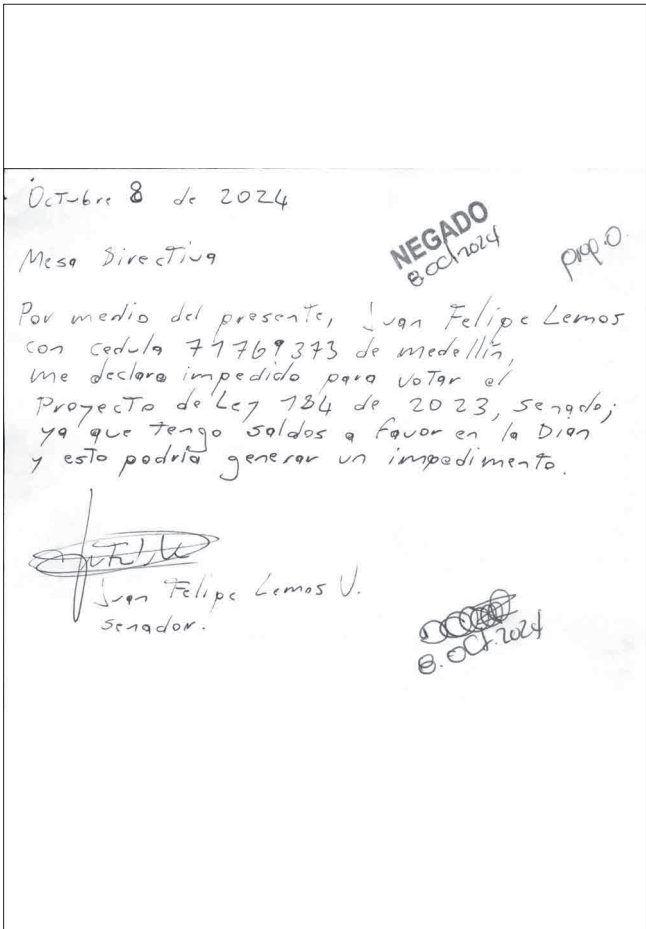 Octubre 8 de 2024
NEGADO
8 oct 2024
prop.O.
Mesa Directiva
Por medio del presente, Juan Felipe Lemos
con cedula 71769373 de medellín,
me declaro impedido para votar el
Proyecto de Ley 184 de 2023, senado;
ya que tengo saldos a favor en la Dian
y esto podría generar un impedimento.
Juan Felipe Lemos U.
Senador.
8. Oct. 2024